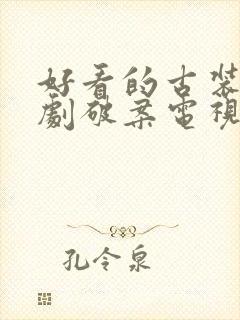 好看的古裝
劇破案電視
孔令泉